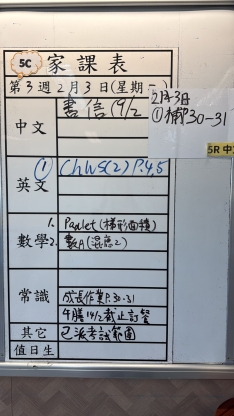 5C 家課表
第3週2月3日(星期二)
中文 書信19/2
2月3日
①補P30-31
5R 中
英文 ① Ch WS(2) P.4,5
數學 1. Paxlet(梯形面積)
2. 數A(混應2)
常識 成長作業P.30-31
午膳14/2截止訂餐
其它 已派考試範圍
值日生